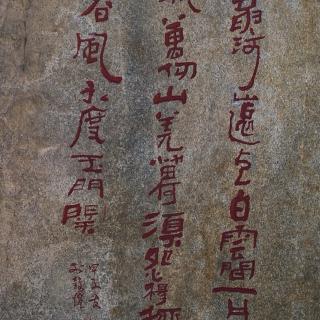 黃河遠上白雲間一片
城萬仞山羌笛何須怨楊
春風不度玉門關